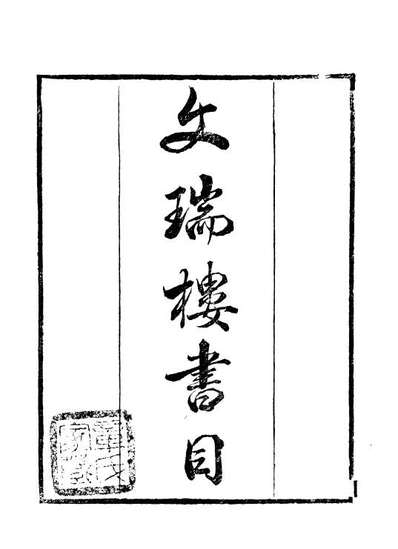 文瑞樓書目